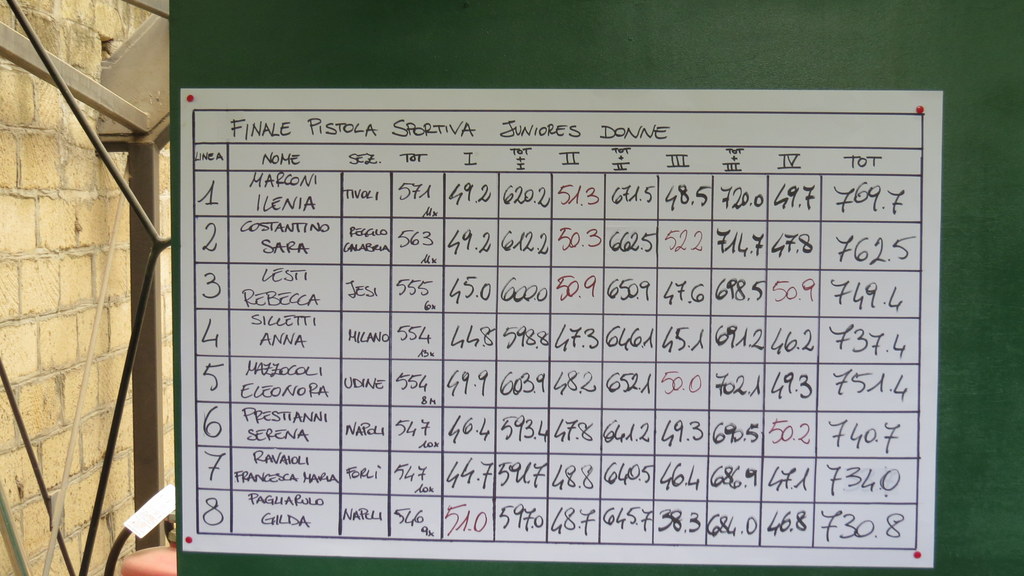 FINALE PISTOLA SPORTIVA JUNIORES DONNE
LINEA NOME SEZ. TOT I TOT + I II TOT + II III TOT + III IV TOT
1 MARCONI ILENIA TIVOLI 571 11x 49.2 620.2 51.3 671.5 48.5 720.0 49.7 769.7
2 COSTANTINO SARA REGGIO CALABRIA 563 11x 49.2 612.2 50.3 662.5 52.2 714.7 47.8 762.5
3 LESTI REBECCA JESI 555 6x 45.0 600.0 50.9 650.9 47.6 698.5 50.9 749.4
4 SILLETTI ANNA MILANO 554 13x 44.8 598.8 47.3 646.1 45.1 691.2 46.2 737.4
5 MAZZOCOLI ELEONORA UDINE 554 8x 49.9 603.9 48.2 652.1 50.0 702.1 49.3 751.4
6 PRESTIANNI SERENA NAPOLI 547 10x 46.4 593.4 47.8 641.2 49.3 690.5 50.2 740.7
7 RAVAIOLI FRANCESCA MARIA FORLÌ 547 10x 44.7 591.7 48.8 640.5 46.4 686.9 47.1 734.0
8 PAGLIARULO GILDA NAPOLI 546 9x 51.0 597.0 48.7 645.7 38.3 684.0 46.8 730.8